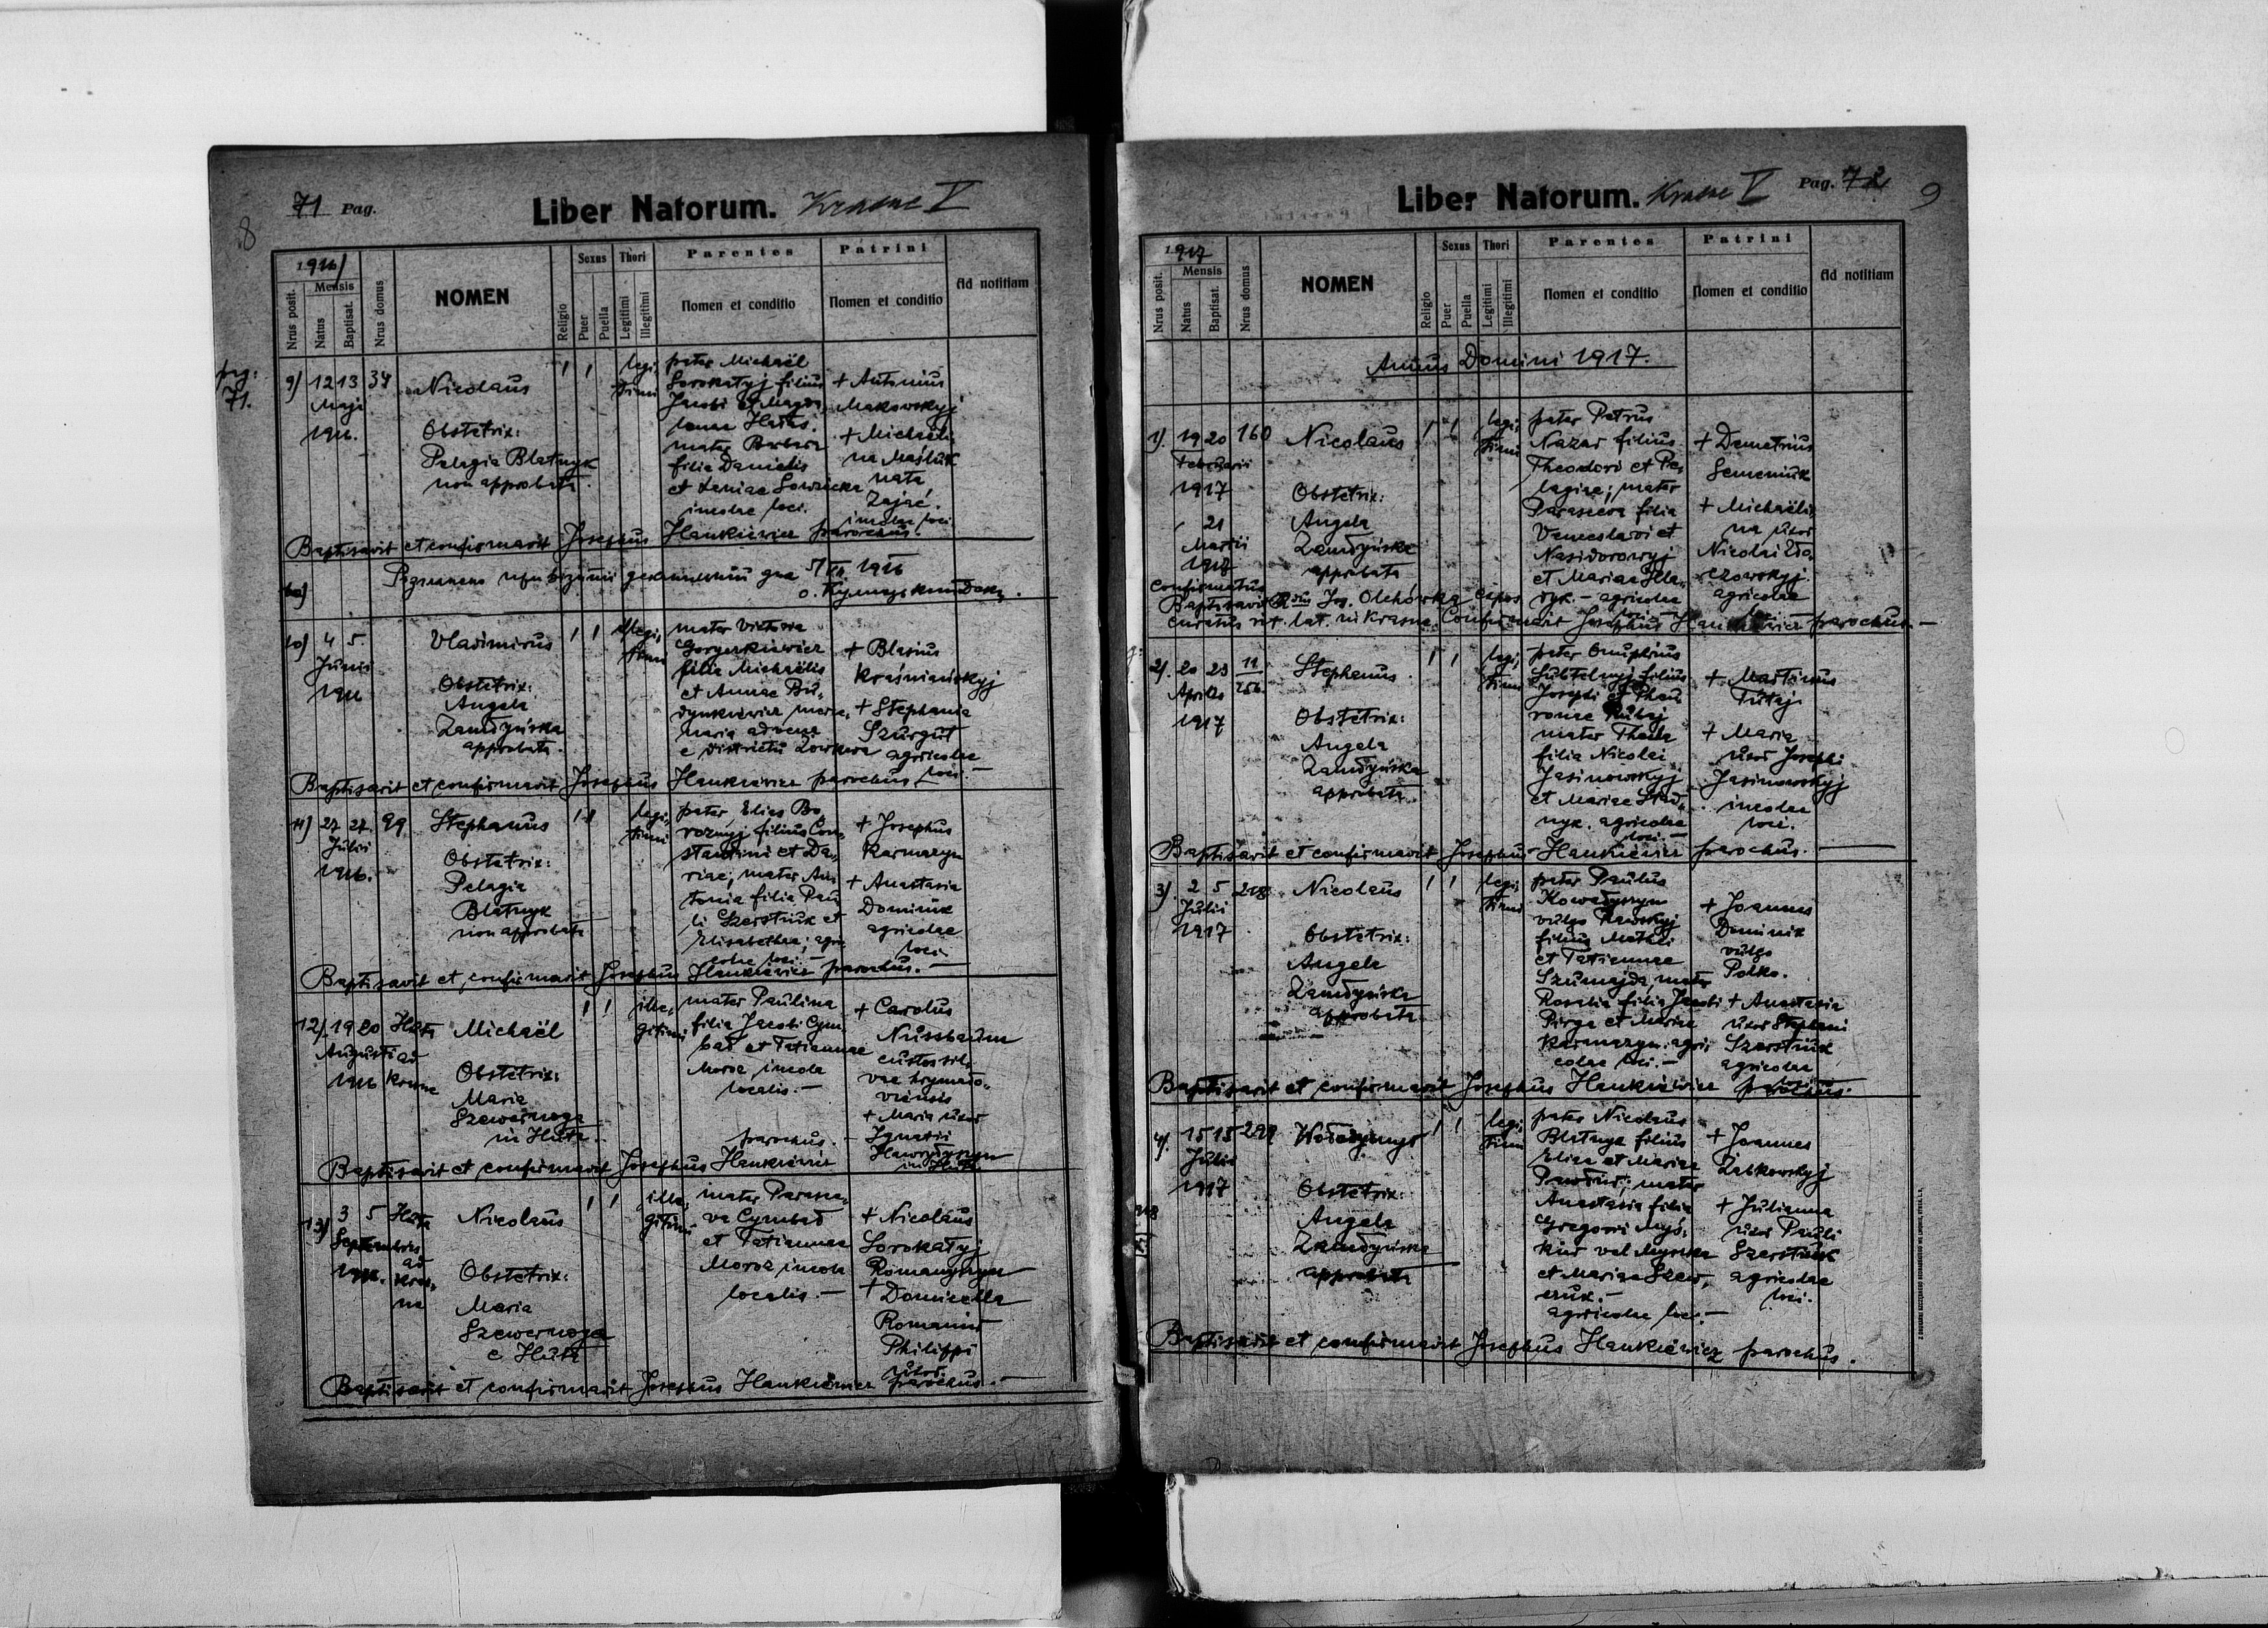 71 Pag.
Liber Natorum. Krasne V
8
1916
Nrus posit.
Mensis
Natus
Baptisat.
Nrus domus
NOMEN
Religio
Sexus
Puer
Puella
Thori
Legitimi
Illegitimi
Parentes
Nomen et conditio
Patrini
Nomen et conditio
Ad notitiam
pag: 71.
9) 12 13 34
Maji
1916.
Nicolaus
Obstetrix:
Pelagia Blatnyk
non approbata.
legi,
timi
pater Michaël
Sorokatyj filius
Jacobi et Magda,
lenae Hatas.
mater Barbara
filia Danielis
et Xeniae Sowzicka
incolae loci.
+ Antonius
Makowskyj
+ Michaëli,
na Maśluk
nata
Zając.
incolae loci
Baptisavit et confirmavit Josephus Hankiewicz parochus.
5/VII 1916
10) 4 5
Junii
1916
Vladimirus
Obstetrix:
Angela
Zamdyńska
approbata.
illegi,
timi
mater Victoria
Gorgurkiewicz
filia Michaëlis
et Annae Bu,
dynkiewicz
advena
e districtu Zowkwa
+ Blasius
Kraśniańskyj
+ Stephania
Szurgut
agricolae
loci —
Baptisavit et confirmavit Josephus Hankiewicz parochus.
11) 27 27 99
Julii
1916.
Stephanus
Obstetrix:
Pelagia
Blatnyk
non approbata
legi,
timi
pater Elias Bo,
roznyj filius Con,
stantini et Da,
riae; mater An,
tonia filia Pau
li Szerstiuk et
Elisabethae; agri,
colae loci. —
+ Josephus
Karmazyn
+ Anastasia
Dominik
agricolae
loci
Baptisavit et confirmavit Josephus Hankiewicz parochus. —
12) 19 20 Huta
Augusti ad
1916 Krasne
Michaël
Obstetrix:
Maria
Szewernoga
in Huta.
ille,
gitimi
mater Paulina
filia Jacobi Cym
bał et Tatiannae
Moroz incola
localis. —
+ Carolus
Nussbaum
custos sil,
vae hrymało,
viensis
+ Maria uxor
Ignatii
Hawryszyszyn
in Huta
Baptisavit et confirmavit Josephus Hankiewicz
parochus. —
13) 3 5 Huta
Septembris ad
1916. Kras,
ne
Nicolaus
Obstetrix:
Maria
Szewernoga
e Huta
ille,
gitimi
mater Parasce,
va Cymbał
et Tatiannae
Moroz incola
localis. —
+ Nicolaus
Sorokatyj
Romanyszyn
+ Domicella
Romaniuk
Philippi
uxor.
Baptisavit et confirmavit Josephus Hankiewicz parochus. —
Liber Natorum. Krasne V Pag. 72
9
1917
Nrus posit.
Mensis
Natus
Baptisat.
Nrus domus
NOMEN
Religio
Sexus
Puer
Puella
Thori
Legitimi
Illegitimi
Parentes
Nomen et conditio
Patrini
Nomen et conditio
Ad notitiam
Annus Domini 1917.
1). 19 20 160
Februarii
1917
21
Martii
1917
confirmatus
Nicolaus
Obstetrix:
Angela
Zamdyńska
approbata
legi,
timi
pater Petrus
Nazar filius
Theodori et Pe,
lagiae; mater
Parasceva filia
Venceslavi et
Nasidorowyj
et Mariae Hla,
dyk — agricolae
loci —
+ Demetrius
Semeniuk
+ Michaëli,
na uxor
Nicolai Zdo,
czowskyj.
agricolae
loci —
Baptisavit Rdus Jos. Olchówka expos.
curatus rit. lat. in Krasne. Confirmavit Josephus Hankiewicz parochus. —
2). 20 23 11
Aprilis 256.
1917
Stephanus.
Obstetrix:
Angela
Zamdyńska
approbata.
legi,
timi
pater Onuphrius
Subtelnyj filius
Josephi et Phau,
roniae Rubaj
mater Thecla
filia Nicolai
Jasinowskyj
et Mariae Stad,
nyk. agricolae
loci. —
+ Martinus
Tutaj
+ Maria
uxor Josephi
Jasinowskyj
incolae
loci.
Baptisavit et confirmavit Josephus Hankiewicz parochus. —
3). 2 5 218
Julii
1917
Nicolaus
Obstetrix:
Angela
Zamdyńska
approbata
legi,
timi
pater Paulus
Kowadynyn
vulgo Rawskyj
filius Mathei
et Tatiannae
Szumajda, mater
Rosalia filia Jacobi
Pirga et Mariae
Karmazyn. agri,
colae loci. —
+ Joannes
Dominik
vulgo
Polko.
+ Anastasia
uxor Stephani
Szerstiuk
agricolae
loci
Baptisavit et confirmavit Josephus Hankiewicz parochus.
4). 15 15 299
Julii
1917
Wołodymyr
Obstetrix:
Angela
Zamdyńska
approbata
legi,
timi
pater Nicolaus
Blatnyk filius
Eliae et Mariae
mater
Anastasia filia
Gregorii Myś,
kiw vel Myśka
et Mariae Szew,
czuk. —
agricolae loci. —
+ Joannes
Zabkowskyj
+ Julianna
uxor Pauli
Szerstiuk
agricolae
loci.
Baptisavit et confirmavit Josephus Hankiewicz parochus.